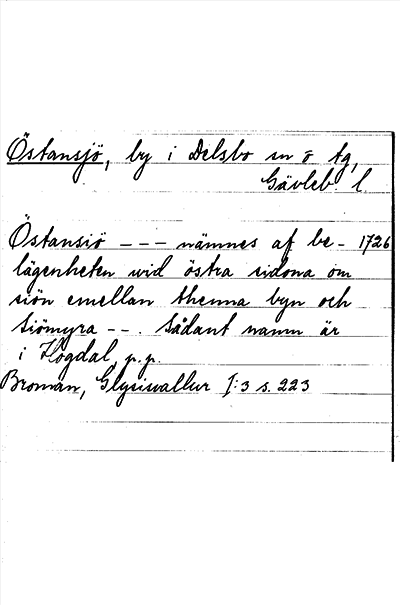 Östansjö, by i Delsbo sn o tg,
Gävleb l.
Östansiö --- nämnes af be- 1726
lägenheten wid östra sidona om
siön emellan thenna byn och
Siömyra --. Sådant namn är
i Hogdal, p.p.
Broman, Glysisvallur I:3 s. 223